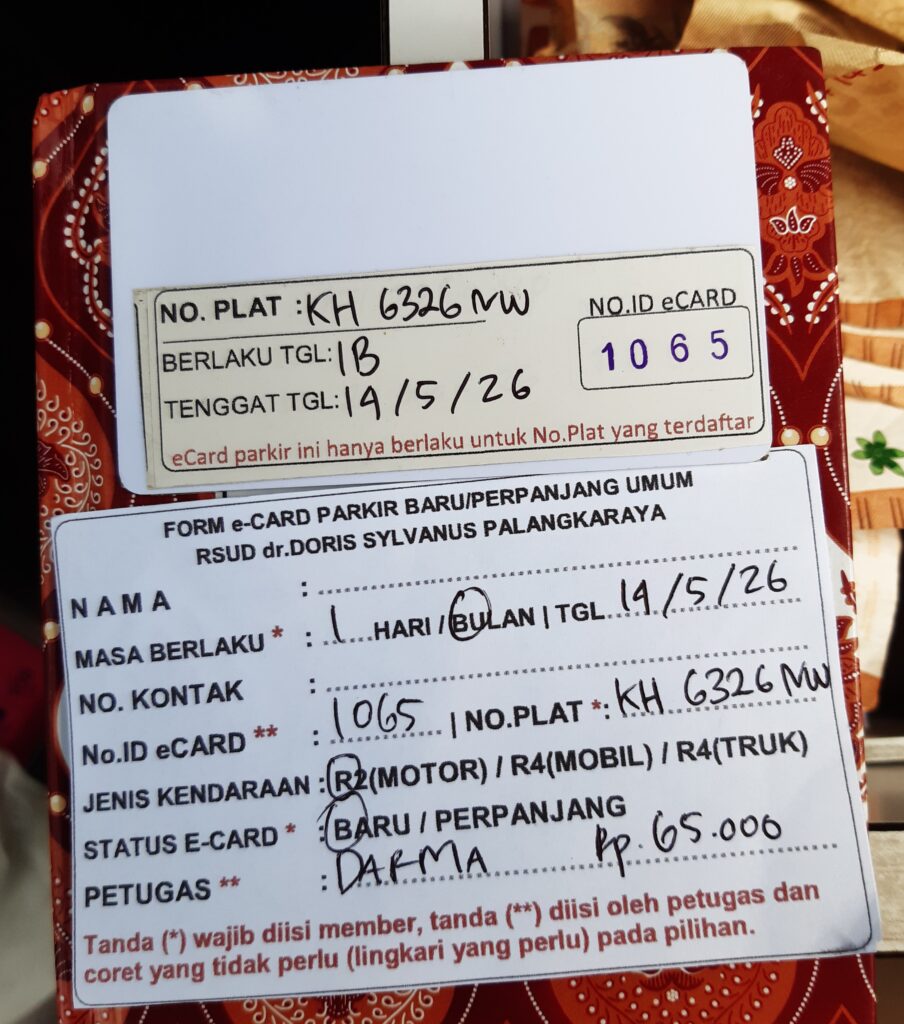 NO. PLAT : KH 6326 NW
NO.ID eCARD
1065
BERLAKU TGL: 1B
TENGGAT TGL: 19/5/26
eCard parkir ini hanya berlaku untuk No.Plat yang terdaftar
FORM e-CARD PARKIR BARU/PERPANJANG UMUM
RSUD dr.DORIS SYLVANUS PALANGKARAYA
NAMA :
MASA BERLAKU * : 1 HARI / BULAN | TGL 19/5/26
NO. KONTAK :
No.ID eCARD ** : 1065 | NO.PLAT *: KH 6326 NW
JENIS KENDARAAN : R2(MOTOR) / R4(MOBIL) / R4(TRUK)
STATUS E-CARD * : BARU / PERPANJANG
PETUGAS ** : DARMA Rp. 65.000
Tanda (*) wajib diisi member, tanda (**) diisi oleh petugas dan
coret yang tidak perlu (lingkari yang perlu) pada pilihan.